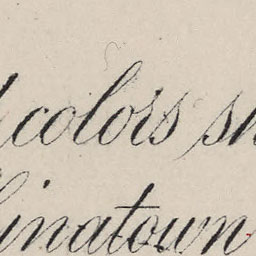 colors
inatown